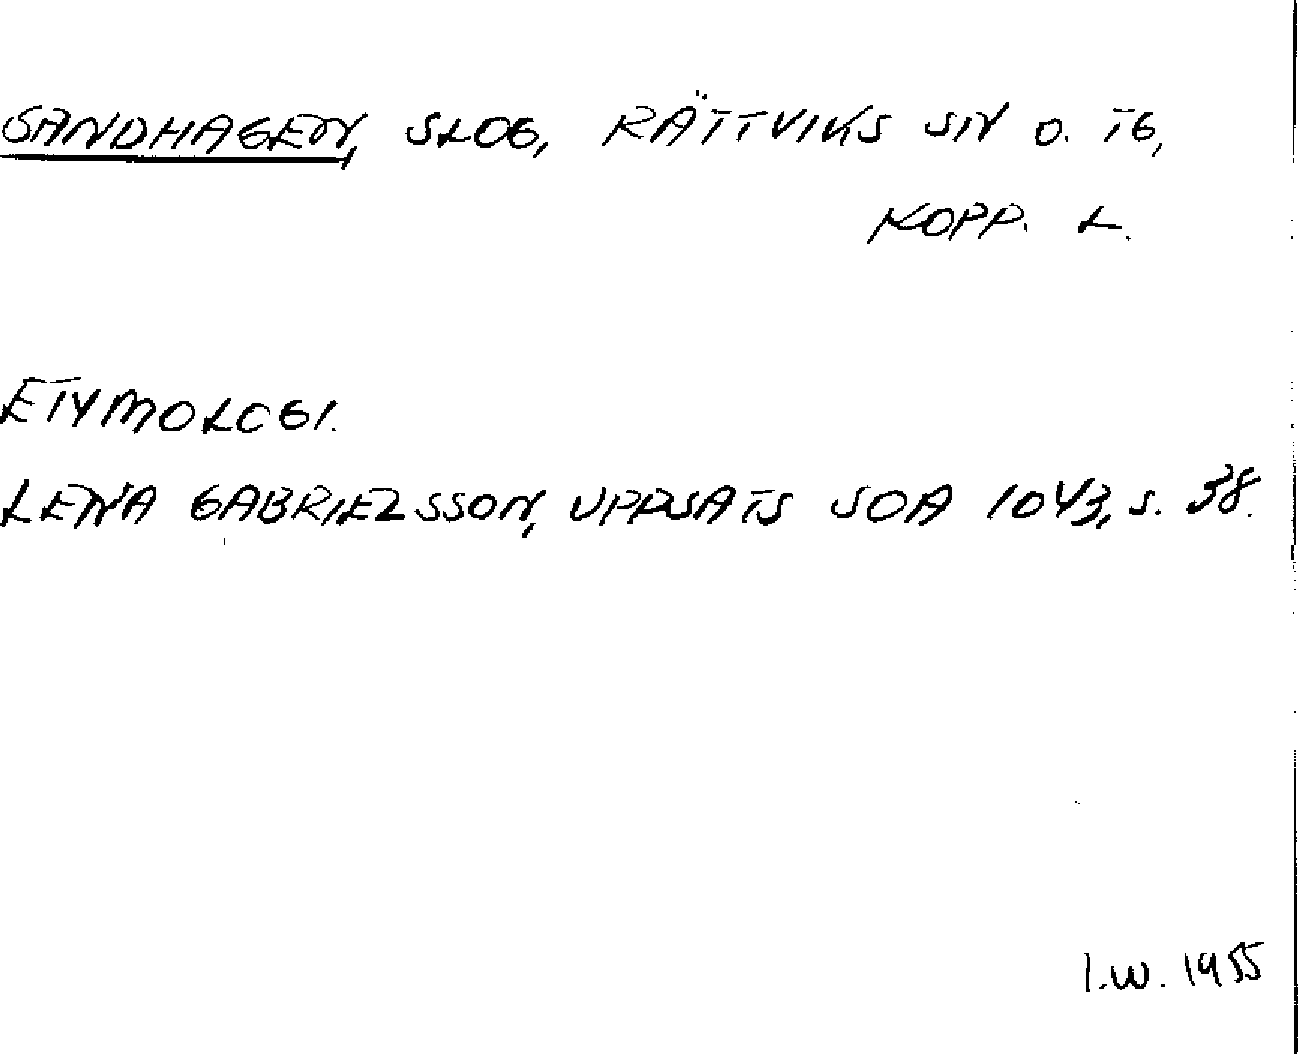 SANDHAGEN, SLOG, RÄTTVIKS SN O. TG,
KOPP. L.
ETYMOLOGI.
LENA GABRIELSSON, UPPSATS SOA 1043, S. 38.
I.W. 1955